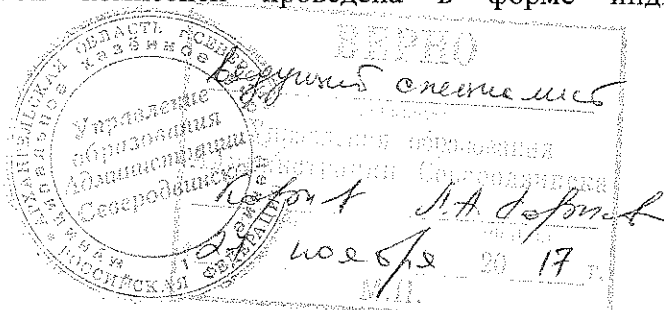 проведена в форме
ВЕРНО
Ведущий специалист
Управления образования
Администрации Северодвинска
Л.А.
21 ноября 20 17 г.
М.П.
АРХАНГЕЛЬСКАЯ ОБЛАСТЬ Г.СЕВЕРОДВИНСК
РОССИЙСКАЯ ФЕДЕРАЦИЯ
казённое
Управление
образования
Администрации
Северодвинска